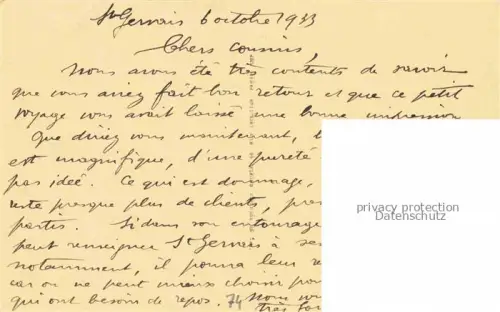 St Gervais 6 octobre 1933
Chers cousins,
Nous avons été très contents de savoir
que vous avez fait bon retour et que ce petit
voyage vous avait laissé une bonne impression
Que diriez vous maintenant,
est magnifique, d'une pureté
pas idée. Ce qui est dommage,
reste presque plus de clients,
partis. Si dans son entourage
peut renseigner St Gervais à
notamment, il pourra leur
car on ne peut mieux choisir
qui ont besoin de repos. 74 Nous
très
privacy protection
Datenschutz